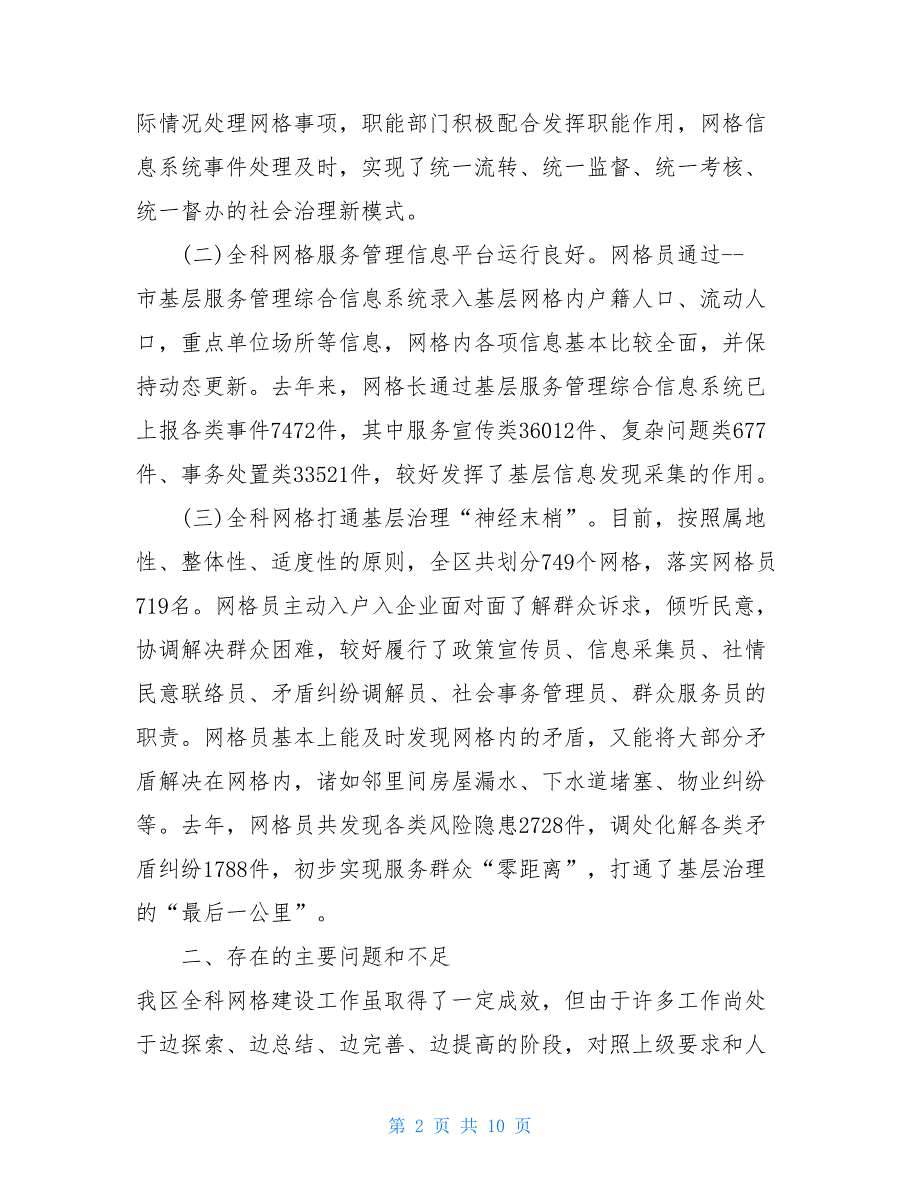 际情况处理网格事项，职能部门积极配合发挥职能作用，网格信
息系统事件处理及时，实现了统一流转、统一监督、统一考核、
统一督办的社会治理新模式。
(二)全科网格服务管理信息平台运行良好。网格员通过--
市基层服务管理综合信息系统录入基层网格内户籍人口、流动人
口，重点单位场所等信息，网格内各项信息基本比较全面，并保
持动态更新。去年来，网格长通过基层服务管理综合信息系统已
上报各类事件7472件，其中服务宣传类36012件、复杂问题类677
件、事务处置类33521件，较好发挥了基层信息发现采集的作用。
(三)全科网格打通基层治理“神经末梢”。目前，按照属地
性、整体性、适度性的原则，全区共划分749个网格，落实网格员
719名。网格员主动入户入企业面对面了解群众诉求，倾听民意，
协调解决群众困难，较好履行了政策宣传员、信息采集员、社情
民意联络员、矛盾纠纷调解员、社会事务管理员、群众服务员的
职责。网格员基本上能及时发现网格内的矛盾，又能将大部分矛
盾解决在网格内，诸如邻里间房屋漏水、下水道堵塞、物业纠纷
等。去年，网格员共发现各类风险隐患2728件，调处化解各类矛
盾纠纷1788件，初步实现服务群众“零距离”，打通了基层治理
的“最后一公里”。
二、存在的主要问题和不足
我区全科网格建设工作虽取得了一定成效，但由于许多工作尚处
于边探索、边总结、边完善、边提高的阶段，对照上级要求和人
第 2 页 共 10 页